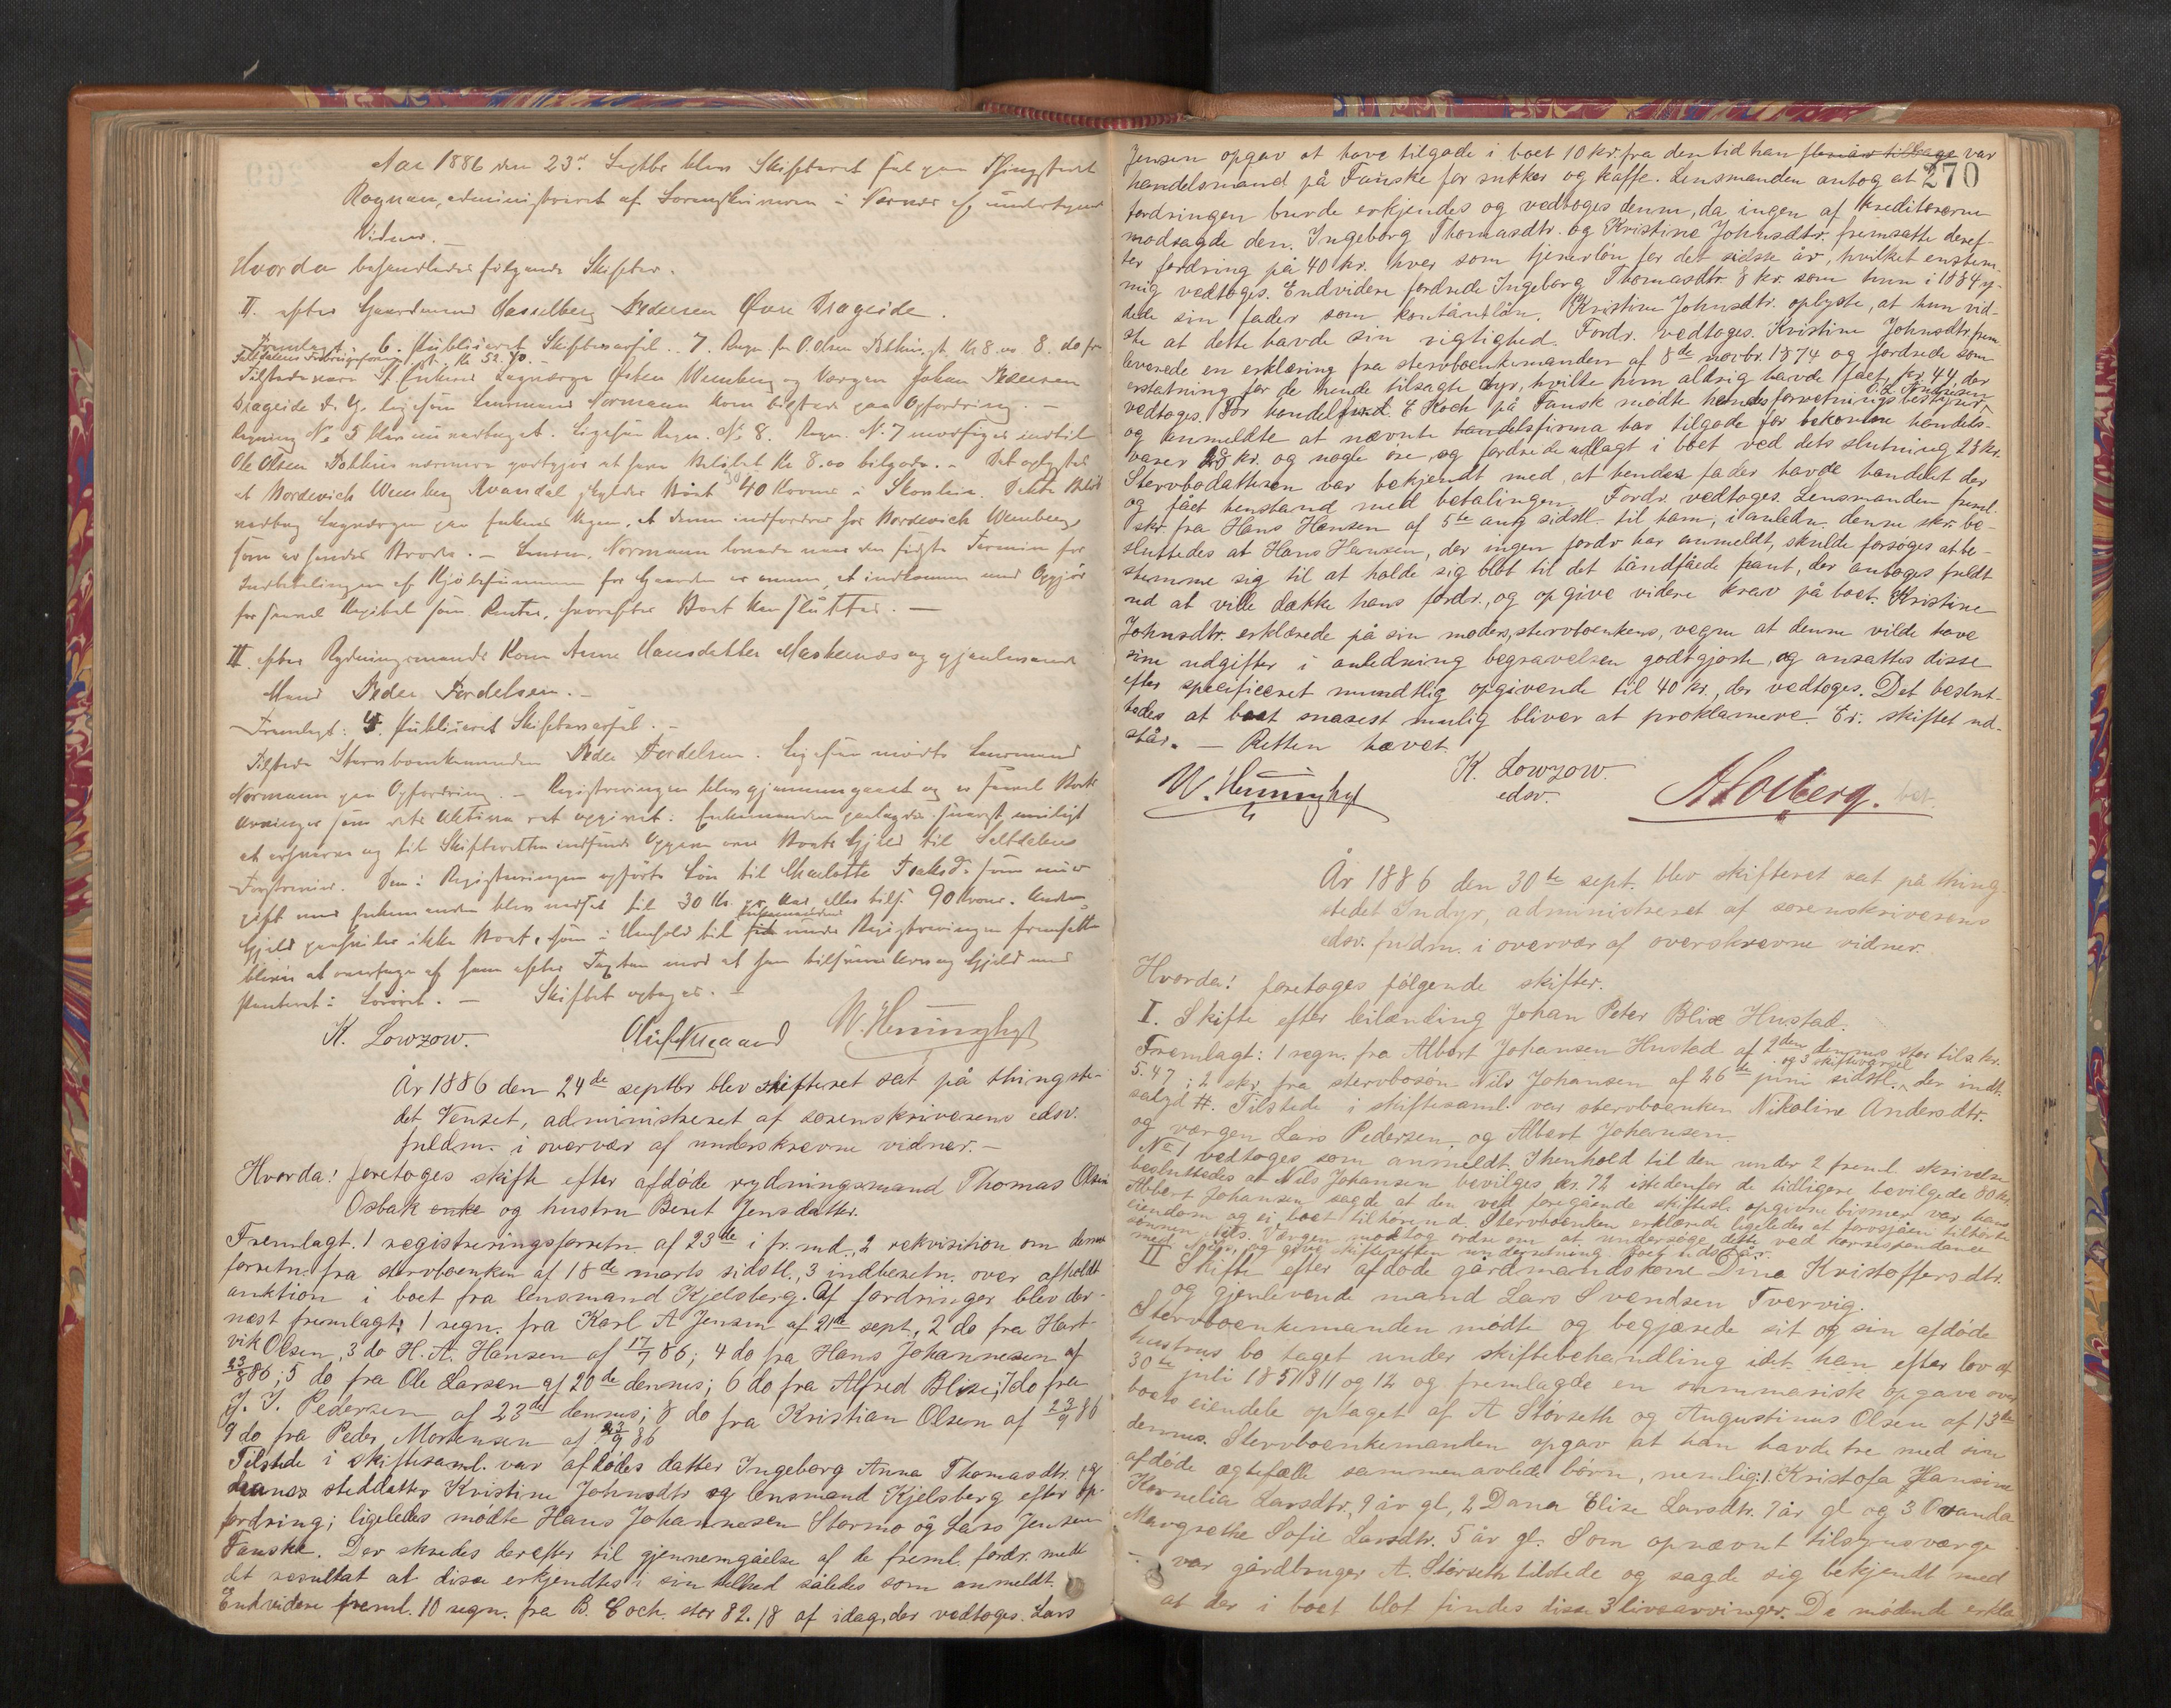 Aar 1886 den 23de Septbr blev Skifteret sat paa Thingstedet
Rognan, administreret af Sorenskriveren i Nærvær af undertegnede
Vidner.
Hvorda behandledes følgende Skifter.
II. efter Gaardmand Hasselberg Pedersen Øvre Drageide.
Fremlagt: 6. Publiceret Skiftevarsel. 7. Regn. fra O. Olsen Kr 8.00 8. do fra
Kr 52.70.
Tilstede var Enkens Lagværge Østen Wensberg og Værgen Johan Pedersen
Drageide ligesom Lensmand Normann kom tilstede paa Opfordring. —
Regning No 5 blev nu vedtaget. Ligesaa Regn. No 8. Regn. No 7 indtil
Ole Olsen nærmere godtgjør at have Beløbet Kr 8.00 tilgode. — Det oplystes
at Nordevich Wensberg skylder Boet 40 Kroner
vedtog Lagværgen paa Enkens Vegne, at denne indfordres hos Nordevich Wensberg,
som er hendes Broder. — Lensm. Normann lovede naar den sidste Termin for
Indbetalingen af Kjøbesummen for Gaarden er omme, at indkomme med Opgjør
for saavel Kapital som Renter, hvorefter Boet kan sluttes. —
III. efter Rydningsmands Kone Anne Hansdatter og gjenlevende
Mand Peder Fordelsen. —
Fremlagt: 4. Publiceret Skiftevarsel. —
Tilstede Stervboenkemanden Peder Fordelsen. Ligesaa mødte Lensmand
Normann paa Opfordring. — Registreringen blev gjennemgaaet og er saavel Boets
Arvinger som dets Aktiva ret opgivet. Enkemanden paalagdes snarest muligt
at erhverve og til Skifteretten indsende Opgave over Boets Gjæld til Saltdalens
Den i Registreringen opførte Løn til Charlotte som nu er
gift med Enkemanden blev nedsat til 30 Kr. pr. Aar eller tils. 90 Kroner. Anden
Gjæld paahviler ikke Boet, som i Henhold til Enkemandens under Registreringen fremsatte
bliver at overtage af ham efter Taxten mod at han tilsvarer Arv og Gjæld med
Panteret i Løsøret. — Skiftet optages. —
K. Lowzow.
År 1886 den 24de septbr blev skifteret sat på thingste-
det Venset, administreret af sorenskriverens edsv.
fuldm. i overvær af underskrevne vidner. —
Hvorda! foretoges skifte efter afdøde rydningsmand Thomas Olsen
Osbak enke og hustru Beret Jensdatter.
Fremlagt. 1 registreringsforretn. af 23de i fr. md., 2 rekvisition om denne
forretn. fra stervboenken af 18de marts sidstl., 3 indberetn. over afholdt
auktion i boet fra lensmand Kjelsberg. Af fordringer blev der-
næst fremlagt: 1 regn. fra Karl A Jensen af 21de sept., 2 do fra Hart-
vik Olsen, 3 do H. A. Hansen af 17/7 86; 4 do fra Hans Johannesen af
23/8 86; 5 do fra Ole Larsen af 20de dennes; 6 do fra Alfred Blix; 7 do fra
J. J. Pedersen af 23de dennes; 8 do fra Kristian Olsen af 23/9 86
9 do fra Peder Mortensen af 23/9 86
Tilstede i skiftesaml. var afdødes datter Ingeborg Anna Thomasdtr. og
hannes steddatter Kristine Johnsdtr og lensmand Kjelsberg efter op-
fordring; ligeledes mødte Hans Johannesen Stormo og Lars Jensen
Fauske. Der skredes derefter til gjennemgåelse af de freml. fordr. med
det resultat at disse erkjendtes i sin helhed således som anmeldt.
Endvidere freml. 10 regn. fra B. Coch. stor 82.18 af idag, der vedtoges. Lars
270
Jensen opgav at have tilgode i boet 10 kr. fra den tid han var
handelsmand på Fauske for sukker og kaffe. Lensmanden antog at
fordringen burde erkjendes og vedtoges denne, da ingen af kreditorerne
modsagde den. Ingeborg Thomasdtr. og Kristine Johnsdtr. fremsatte deref-
ter fordring på 40 kr. hver som tjenerløn for det sidste år, hvilket enstem-
mig vedtoges. Endvidere fordrede Ingeborg Thomasdtr. 8 kr. som hun i 1884 y-
dede sin fader som kontantlån. Kristine Johnsdtr. oplyste, at hun vid-
ste at dette havde sin rigtighed. Fordr. vedtoges. Kristine Johnsdtr. frem-
leverede en erklæring fra stervboenkemanden af 8de novbr. 1874 og fordrede som
erstatning for de hende tilsagte dyr, hvilke hun aldrig havde fået, kr. 44, der
vedtoges. For handelsfirmaet E Koch på Fausk mødte handelsforretnings bestyrer
og anmeldte at nævnte handelsfirma har tilgode for bekomne handels-
varer 28 kr. og nogle øre, og fordrede udlagt i boet ved dets slutning 28 kr.
Stervbodatteren var bekjendt med, at hendes fader havde handelet der
og fået henstand med betalingen. Fordr. vedtoges. Lensmanden freml.
skr. fra Hans Hansen af 5te aug sidstl. til ham, i anledn. denne skr. be-
sluttedes at Hans Hansen, der ingen fordr har anmeldt, skulde forsøges at be-
stemme sig til at holde sig blot til det håndfåede pant, der antoges fuldt
ud at ville dække hans fordr., og opgive videre krav på boet. Kristine
Johnsdtr. erklærede på sin moders, stervboenkens, vegne at denne vilde have
sine udgifter i anledning begravelsen godtgjort, og ansattes disse
efter specificeret mundtlig opgivende til 40 kr., der vedtoges. Det beslut-
tedes at boet snarest mulig bliver at proklamere. Er. skiftet ud-
står. — Retten hævet.
K. Lowzow.
edsv.
År 1886 den 30te sept. blev skifteret sat på thing-
stedet Indyr, administreret af sorenskriverens
edsv. fuldm. i overvær af overskrevne vidner.
Hvorda! foretoges følgende skifter.
I. Skifte efter leilænding Johan Peter Blix Hustad.
Fremlagt: 1 regn. fra Albert Johansen Hustad af 9den dennes stor tils. kr.
5.47; 2 skr. fra stervbosøn Nils Johansen af 26de juni sidstl. og 3 skiftevarsel der indt.
salgd #. Tilstede i skiftesaml. var stervboenken Nikoline Andersdtr.
og værgen Lars Pedersen og Albert Johansen.
No 1 vedtoges som anmeldt. I henhold til den under 2 freml. skrivelse
besluttedes at Nils Johansen bevilges kr. 72 istedenfor de tidligere bevilgede 80 kr.
Albert Johansen sagde at den ved foregående skiftesl. opgivne bismer var hans
eiendom og ei boet tilhørend. Stervboenken erklærede ligeledes at tilhørte
sønnen Nils. Værgen modtog ordre om at undersøge dette ved korrespondance
med Nils, og give skifteretten underretning. Boet udstår.
II Skifte efter afdøde gårdmandskone Dina Kristoffersdtr.
og gjenlevende mand Lars Svendsen Tvervig.
Stervboenkemanden mødte og begjærede sit og sin afdøde
hustrus bo taget under skiftebehandling idet han efter lov af
30te juli 1851 § 11 og 12 og fremlagde en summarisk opgave over
boets eiendele optaget af A Størseth og Augustinus Olsen af 13de
dennes. Stervboenkemanden opgav at han havde tre med sin
afdøde ægtefælle sammenavlede børn, nemlig: 1. Kristofa Hansine
Kornelia Larsdtr, 9 år gl, 2 Dana Elise Larsdtr. 7 år gl og 3 Ovanda
Margrethe Sofie Larsdtr. 5 år gl. Som opnævnt tilsynsværge
var gårdbruger A. Størseth tilstede og sagde sig bekjendt med
at der i boet blot findes disse 3 livsarvinger. De mødende erklæ